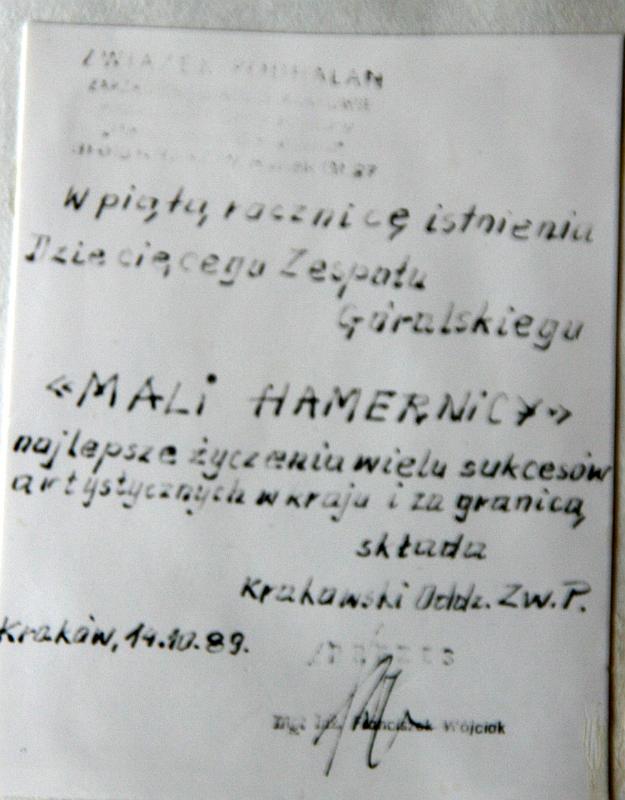 ZWIĄZEK PODHALAN
W piątą rocznicę istnienia
Dziecięcego Zespołu
Góralskiego
«MALI HAMERNICY»
najlepsze życzenia wielu sukcesów
artystycznych w kraju i za granicą
składa
Krakowski Oddz. Zw. P.
Kraków, 14.10.89.
PREZES
Mgr Inż. Franciszek Wójciak